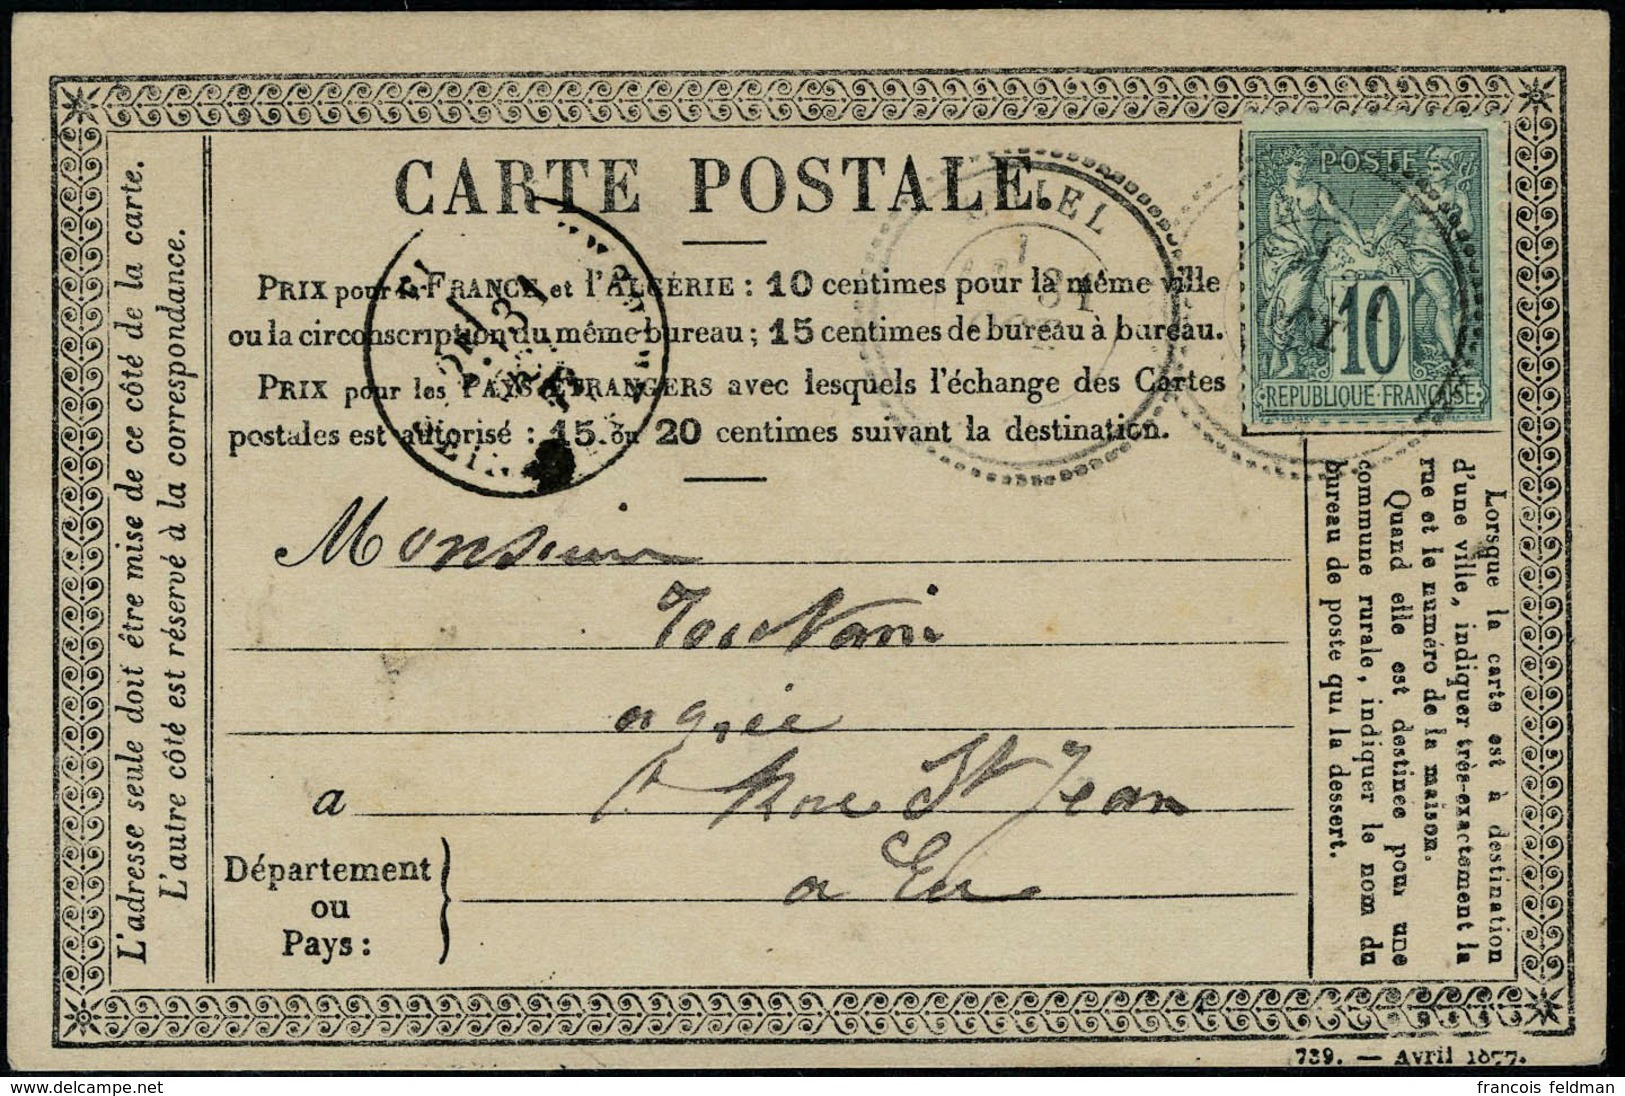 CARTE POSTALE.
PRIX pour la FRANCE et l'ALGÉRIE : 10 centimes pour la même ville
ou la circonscription du même bureau ; 15 centimes de bureau à bureau.
PRIX pour les PAYS ÉTRANGERS avec lesquels l'échange des Cartes
postales est autorisé : 15 ou 20 centimes suivant la destination.
POSTE
10
REPUBLIQUE FRANÇAISE
31
Monsieur
agréé
a Rue St Jean
a Eu
Département
ou
Pays :
L'adresse seule doit être mise de ce côté de la carte.
L'autre côté est réservé à la correspondance.
Lorsque la carte est à destination
d'une ville, indiquer très-exactement la
rue et le numéro de la maison.
Quand elle est destinée pour une
commune rurale, indiquer le nom du
bureau de poste qui la dessert.
739. — Avril 1877.
delcampe.net
francois feldman